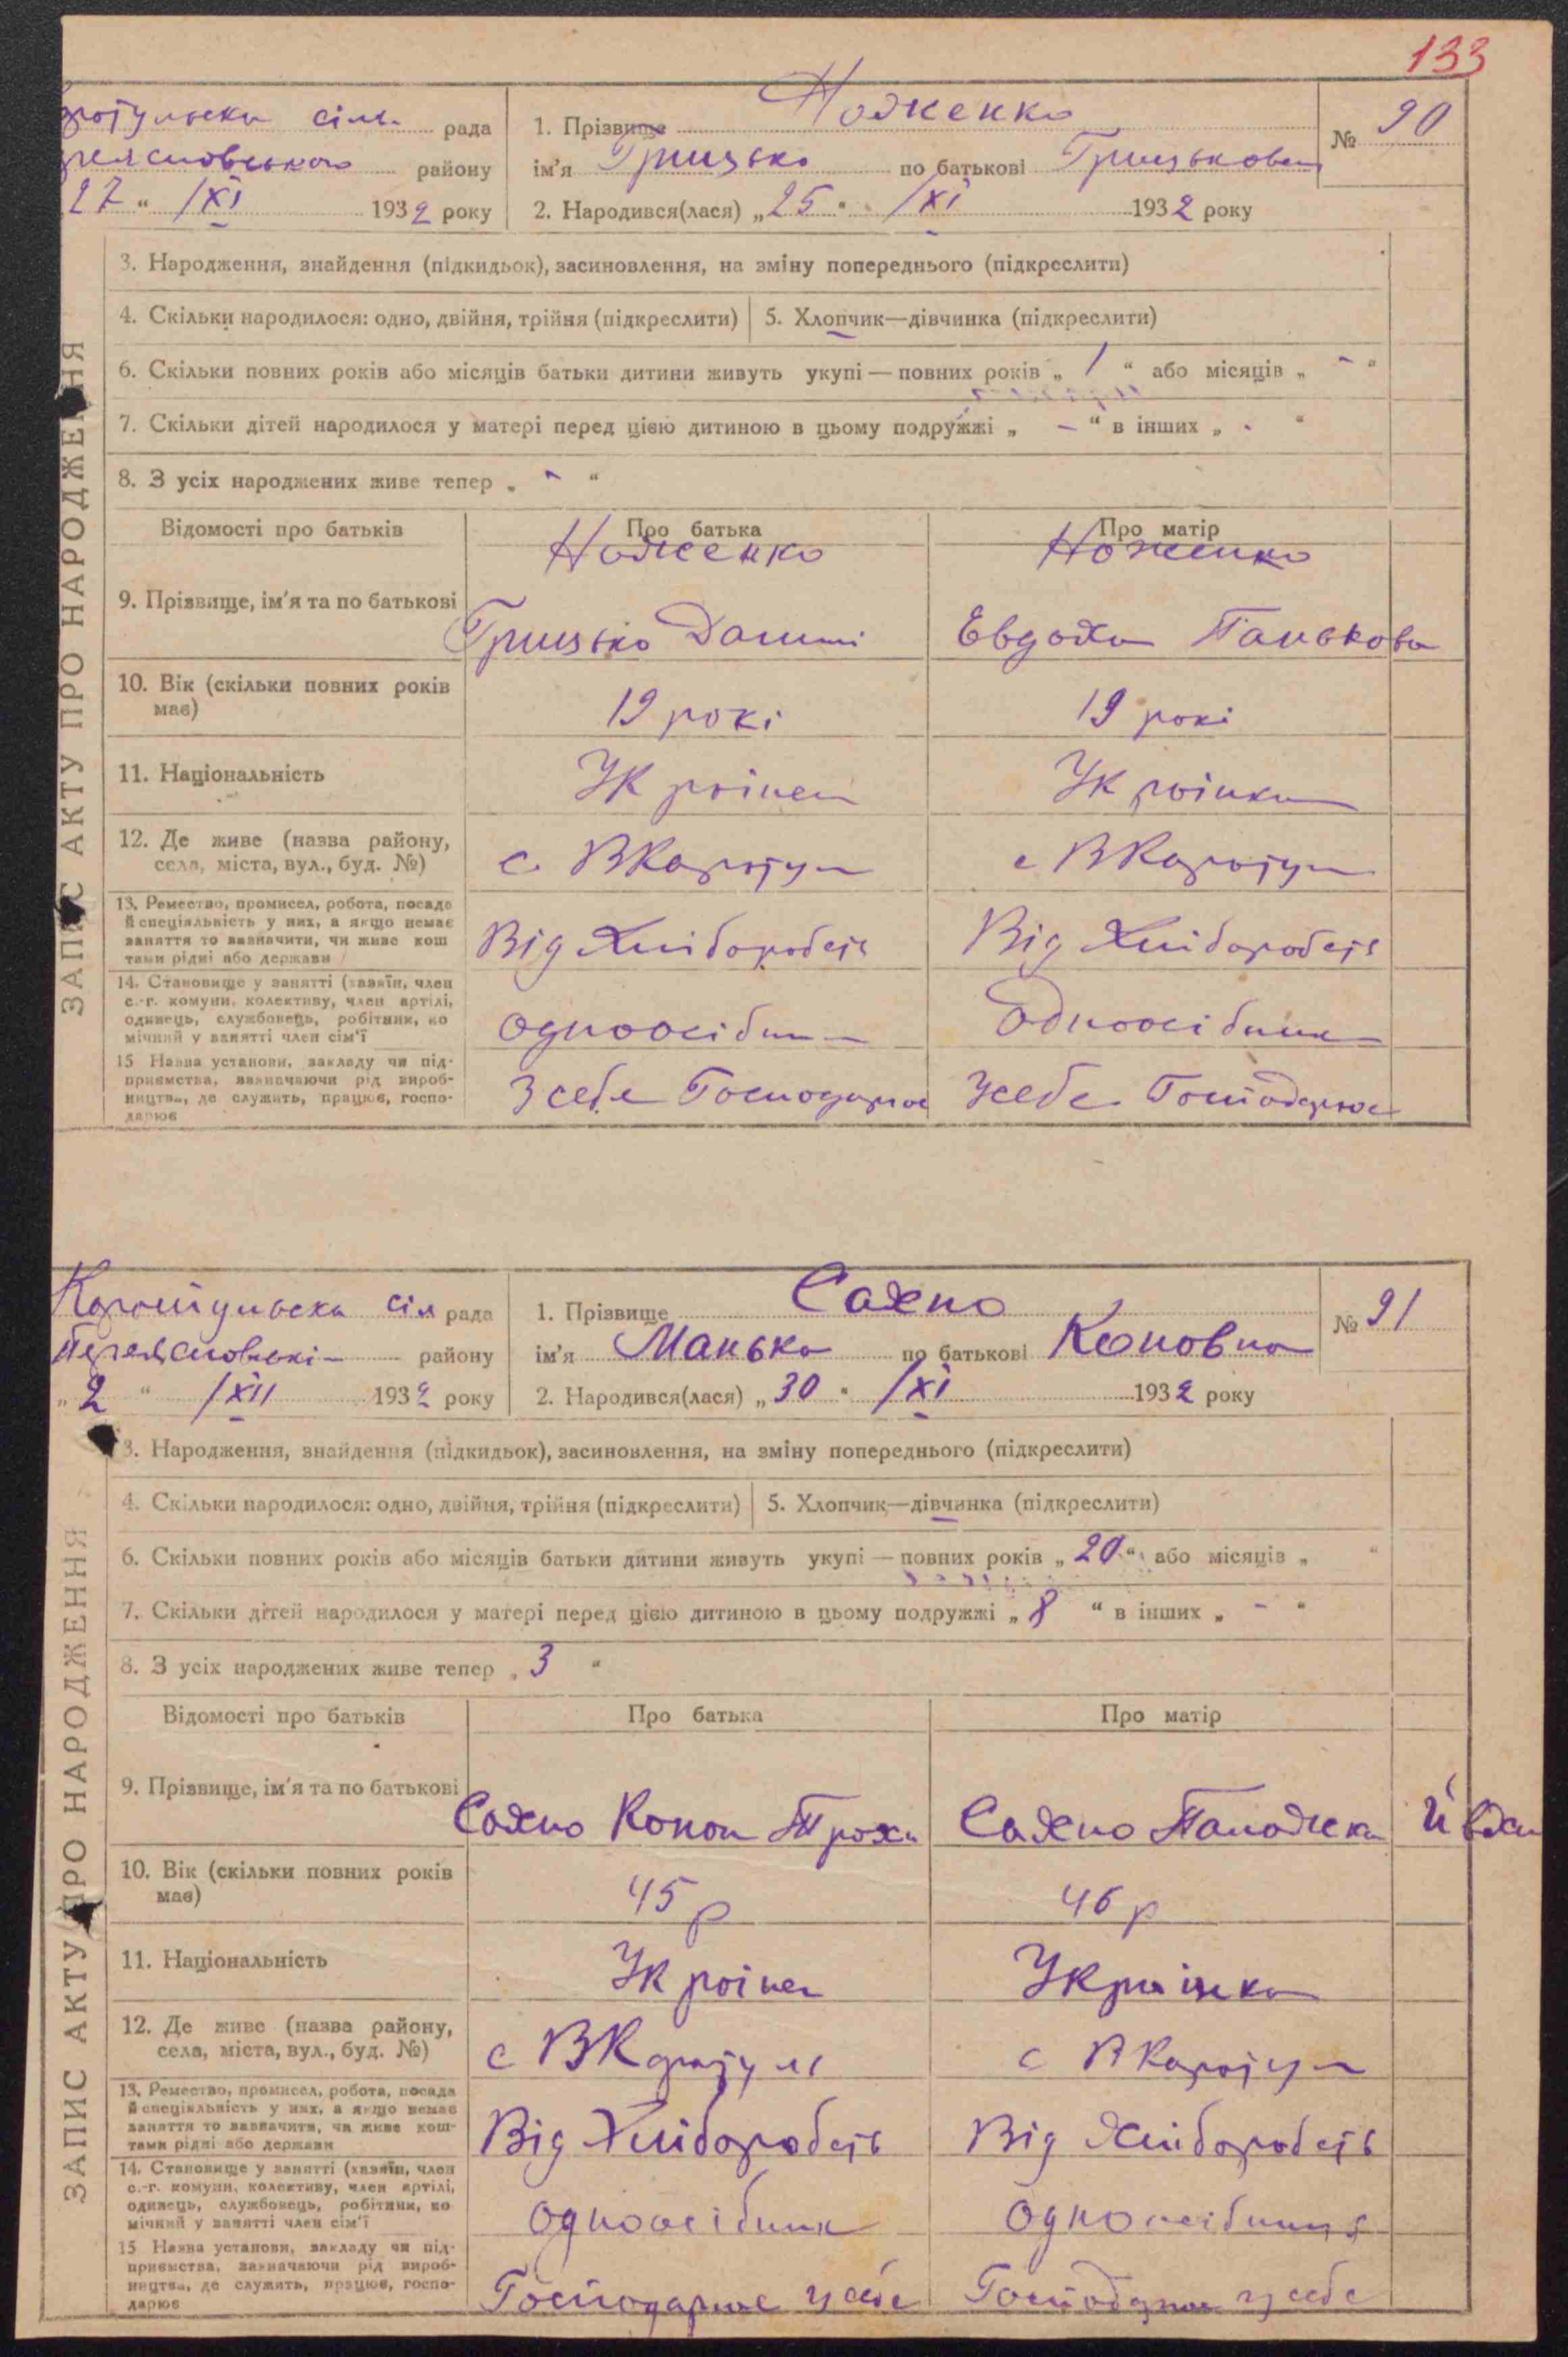 133
сіль. рада
району
27 " /XI 1932 року
1. Прізвище Ноженко
ім'я Грицько по батькові Грицькович
№ 90
2. Народився(лася) „25" /XI 1932 року
ЗАПИС АКТУ ПРО НАРОДЖЕННЯ
3. Народження, знайдення (підкидьок), засиновлення, на зміну попереднього (підкреслити)
4. Скільки народилося: одно, двійня, трійня (підкреслити) 5. Хлопчик—дівчинка (підкреслити)
6. Скільки повних років або місяців батьки дитини живуть укупі — повних років „ 1 " або місяців „ - "
7. Скільки дітей народилося у матері перед цією дитиною в цьому подружжі „ - " в інших „ - "
8. З усіх народжених живе тепер „ - "
Відомості про батьків Про батька Про матір
9. Прізвище, ім'я та по батькові
Ноженко
Грицько
Ноженко
Евдоха Панькова
10. Вік (скільки повних років
має)
19 рокі 19 рокі
11. Національність Украінец Украінка
12. Де живе (назва району,
села, міста, вул., буд. №)
с. ВКаратул с ВКаратул
13. Ремество, промисел, робота, посада
й спеціяльність у них, а якщо немає
заняття то зазначити, чи живе кош
тами рідні або держави
Від Хліборобств Від Хліборобств
14. Становище у занятті (хазяїн, член
с.-г. комуни, колективу, член артілі,
одинець, службовець, робітник, по
мічний у занятті член сім'ї
одноосібник Одноосібник
15 Назва установи, закладу чи під-
приємства, зазначаючи рід вироб-
ництва, де служить, працює, госпо-
дарює
У себе Господарює У себе Господарює
Каратульска сіл рада
району
„ 2 " /XII 1932 року
1. Прізвище Сахно
ім'я Манька по батькові Коновна
№ 91
2. Народився(лася) „30" /XI 1932 року
ЗАПИС АКТУ ПРО НАРОДЖЕННЯ
3. Народження, знайдення (підкидьок), засиновлення, на зміну попереднього (підкреслити)
4. Скільки народилося: одно, двійня, трійня (підкреслити) 5. Хлопчик—дівчинка (підкреслити)
6. Скільки повних років або місяців батьки дитини живуть укупі — повних років „ 20 " або місяців „ "
7. Скільки дітей народилося у матері перед цією дитиною в цьому подружжі „ 8 " в інших „ - "
8. З усіх народжених живе тепер „ 3 "
Відомості про батьків Про батька Про матір
9. Прізвище, ім'я та по батькові
Сахно Конон Трохи Сахно
10. Вік (скільки повних років
має)
45 р 46 р
11. Національність Украінец Украінка
12. Де живе (назва району,
села, міста, вул., буд. №)
с ВКаратул с ВКаратул
13. Ремество, промисел, робота, посада
й спеціяльність у них, а якщо немає
заняття то зазначити, чи живе кош-
тами рідні або держави
Від Хліборобств Від Хліборобств
14. Становище у занятті (хазяїн, член
с.-г. комуни, колективу, член артілі,
одинець, службовець, робітник, по
мічний у занятті член сім'ї
одноосібник одноосібниця
15 Назва установи, закладу чи під-
приємства, зазначаючи рід вироб-
ництва, де служить, працює, госпо-
дарює
Господарює у себе Господарює у себе